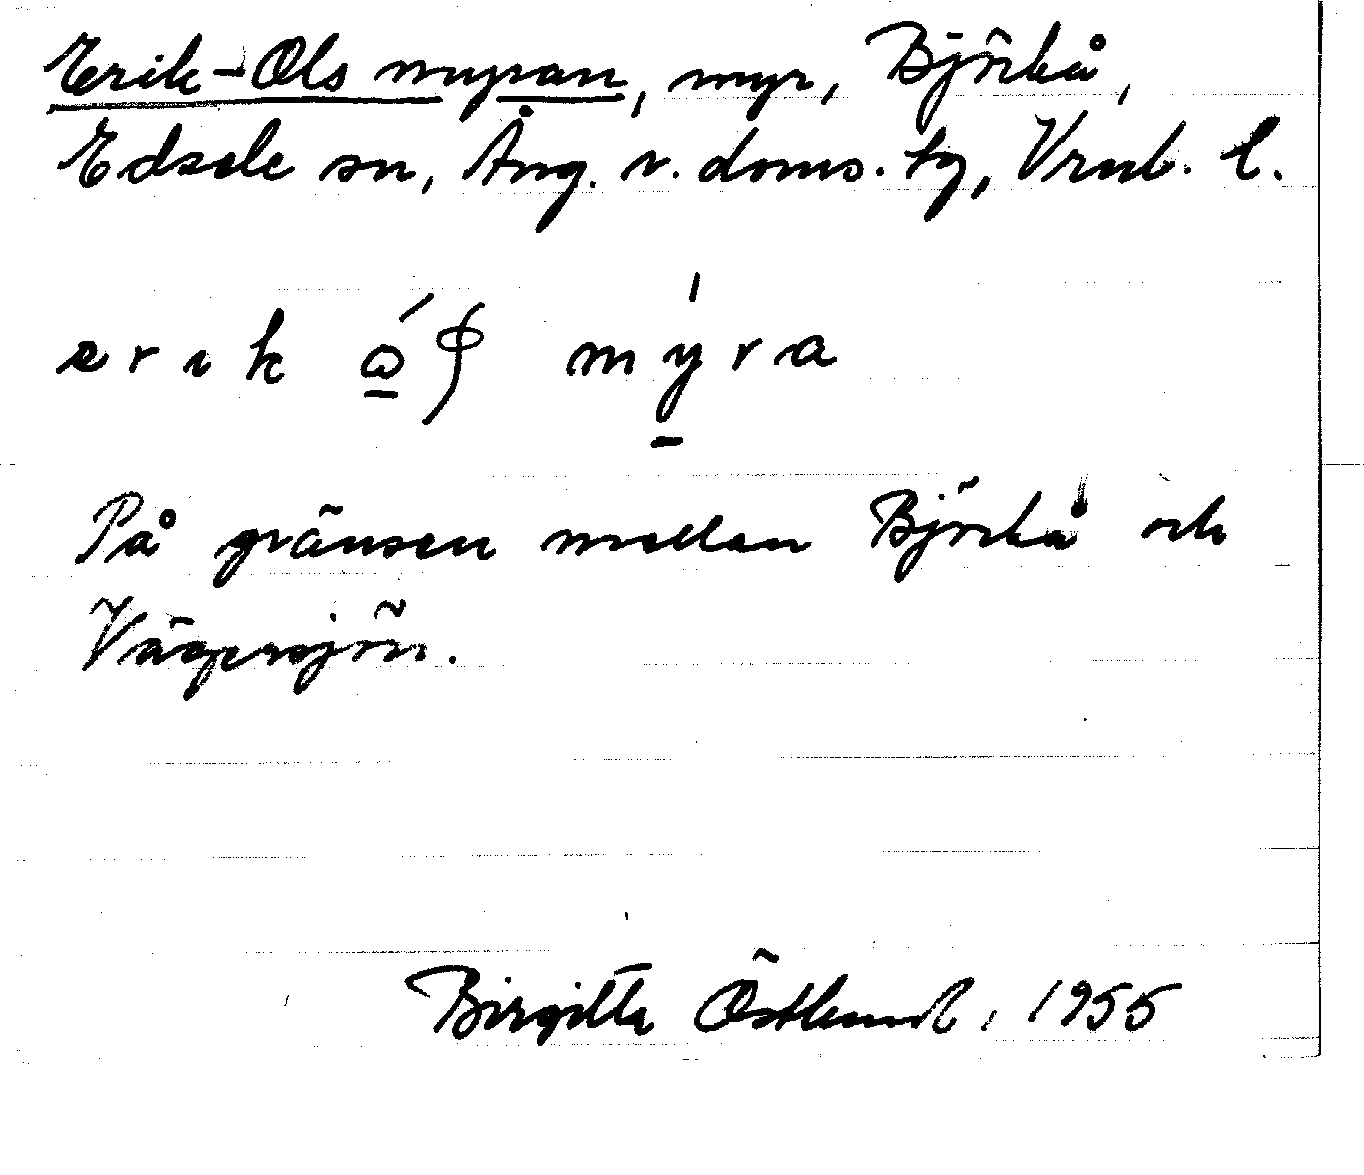 Erik-Ols myran, myr, Björkå,
Edsele sn, Ång. v. doms. tg, Vrnl. l.
erik myra
På gränsen mellan Björkå och
Vägersjön.
Birgitta Östlund, 1955